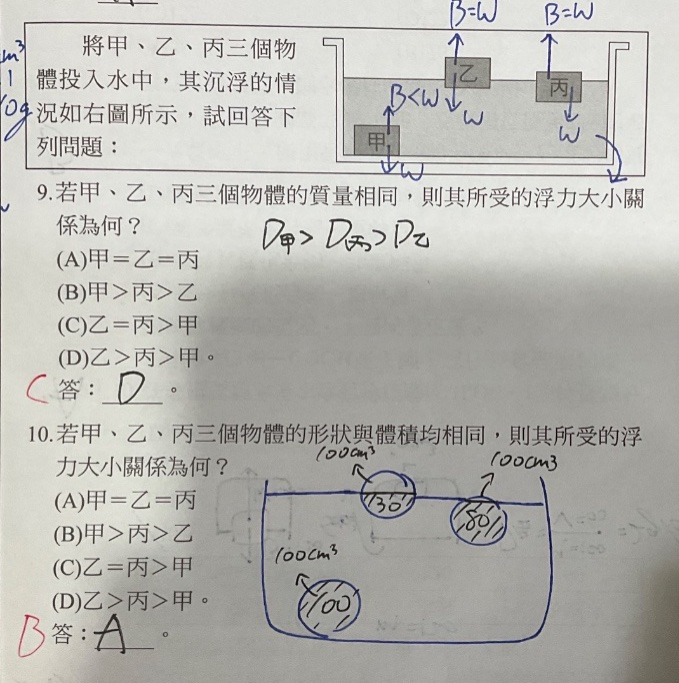 B=W
B=W
cm³
將甲、乙、丙三個物
體投入水中，其沉浮的情
況如右圖所示，試回答下
列問題：
乙
丙
甲
B<W
W
W
W
9.若甲、乙、丙三個物體的質量相同，則其所受的浮力大小關
係為何？
D甲> D丙> D乙
(A)甲＝乙＝丙
(B)甲＞丙＞乙
(C)乙＝丙＞甲
(D)乙＞丙＞甲。
C 答：D。
10.若甲、乙、丙三個物體的形狀與體積均相同，則其所受的浮
力大小關係為何？
100cm³
100cm³
(A)甲＝乙＝丙
(B)甲＞丙＞乙
(C)乙＝丙＞甲
(D)乙＞丙＞甲。
30
80
100cm³
100
B 答：A。